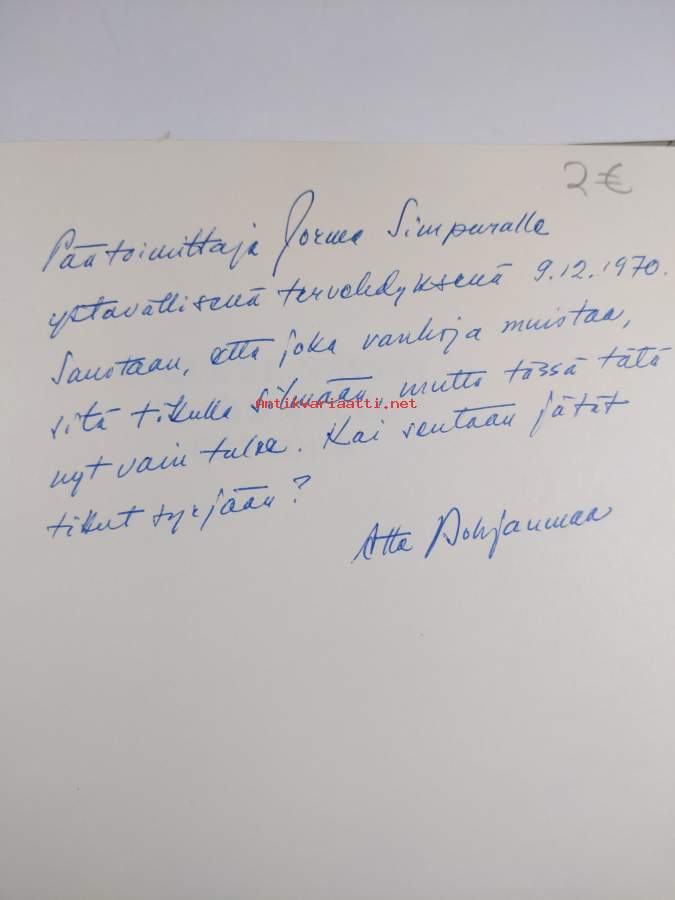 2 €
Päätoimittaja Jorma Simpuralle
ystävällisenä tervehdyksenä 9.12.1970.
Sanotaan, että joka vanhoja muistaa,
sitä tikulla silmään, mutta tässä tätä
Antikvariaatti.net
nyt vain tulee. Kai sentään jätät
tikut syrjään?
Atte Pohjanmaa